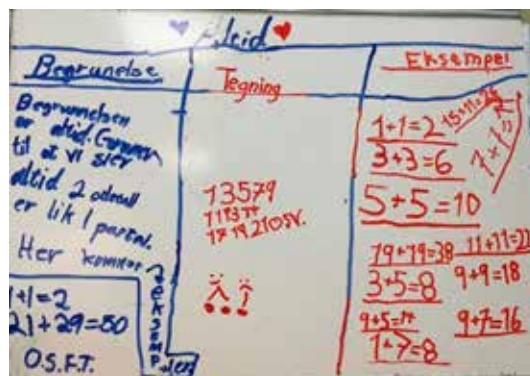 Altid
Begrunelse
Begrunnelsen
er altid. Grunnen
til at vi sier
altid 2 odetall
er lik 1 partal.
Her kommer
2 eksempler
1+1=2
21+29=50
O.S.F.T.
Tegning
13579
11131517
171921OSV.
Eksempel
1+1=2
3+3=6
5+5=10
19+19=38
11+11=22
3+5=8
9+9=18
9+7=16
1+7=8